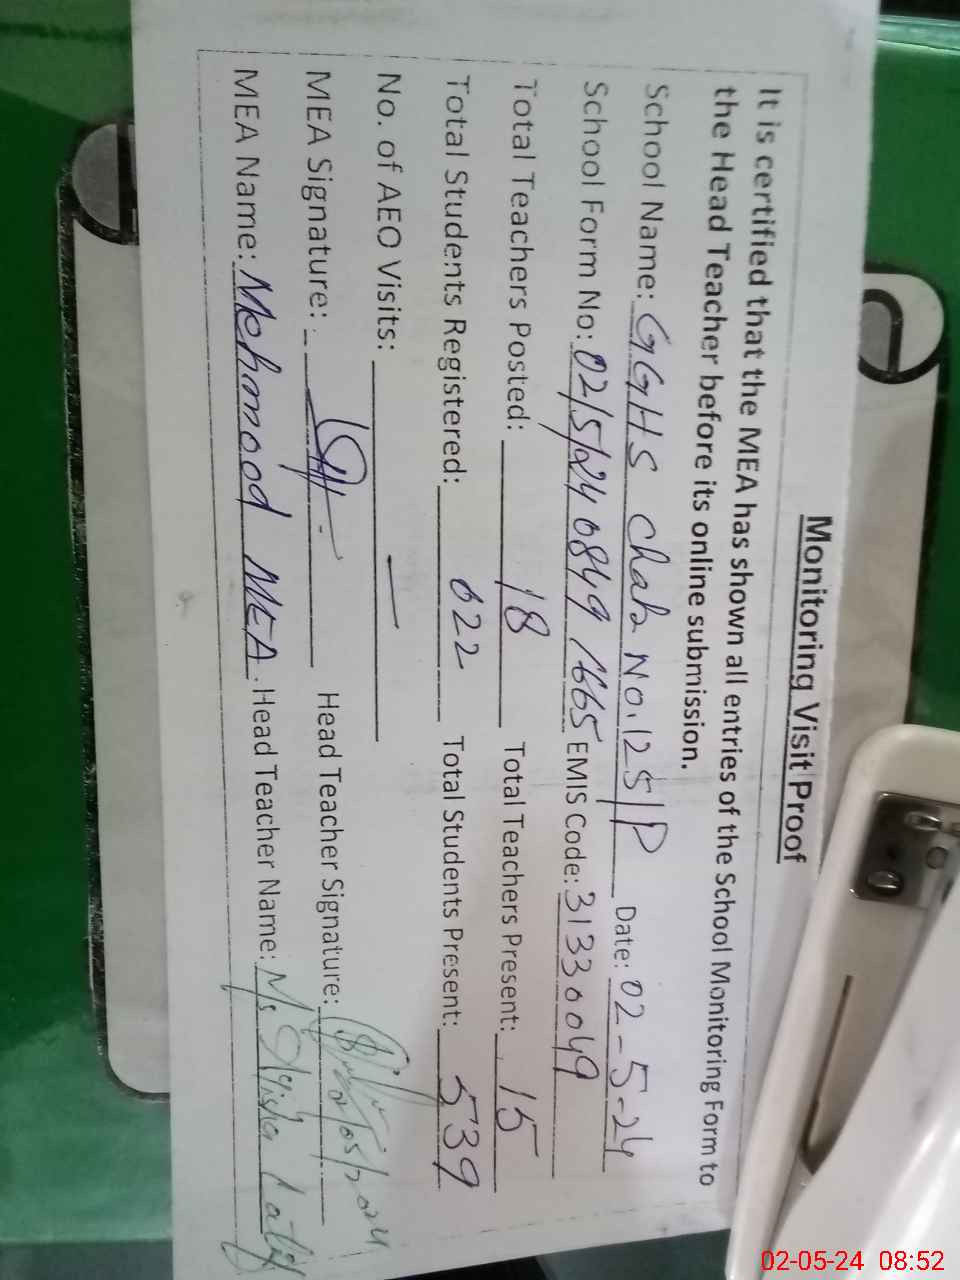 Monitoring Visit Proof
It is certified that the MEA has shown all entries of the School Monitoring Form to
the Head Teacher before its online submission.
School Name: GGHS Chak No. 125/P Date: 02-5-24
School Form No: 02/5/24 0849 1665 EMIS Code: 31330049
Total Teachers Posted: 18 Total Teachers Present: 15
Total Students Registered: 622 Total Students Present: 539
No. of AEO Visits: —
MEA Signature: Head Teacher Signature: 02/05/2024
MEA Name: Mehmood MEA. Head Teacher Name: Ms
02-05-24 08:52